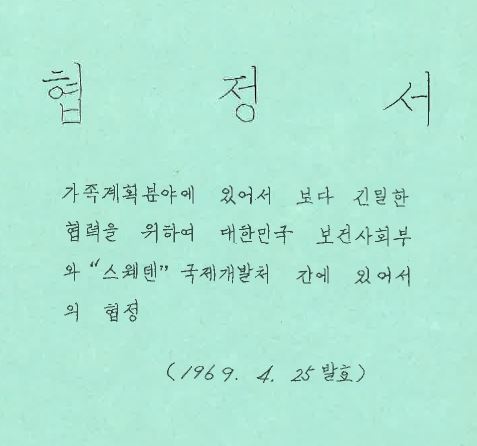 협 정 서
가족계획분야에 있어서 보다 긴밀한
협력을 위하여 대한민국 보건사회부
와 “스웨덴” 국제개발처 간에 있어서
의 협정
(1969. 4. 25 발효)